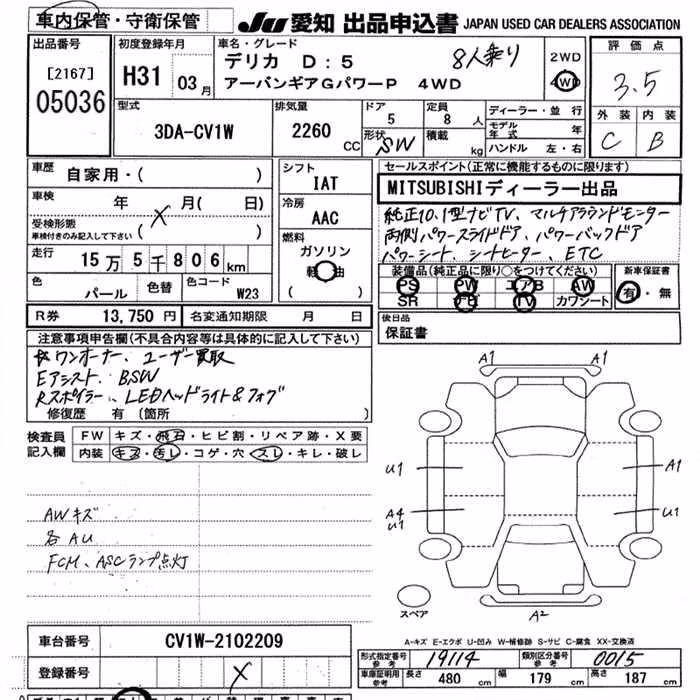 車内保管・守衛保管
JU 愛知 出品申込書 JAPAN USED CAR DEALERS ASSOCIATION
出品番号
[2167]
05036
初度登録年月
H31 03月
車名・グレード
デリカ D:5 8人乗り
アーバンギアGパワーP 4WD
2WD
4WD
評価点
3.5
外装 内装
C B
型式
3DA-CV1W
排気量
2260 CC
ドア
5
定員
8 人
形状 SW
積載 kg
ディーラー・並行
モデル年式 年
ハンドル 左・右
車歴 自家用・( )
車検 年 月( 日)
受検形態
車検付きのみ記入して下さい ( X )
走行 15万5千806km
色 パール
色替
色コード W23
シフト
IAT
冷房
AAC
燃料
ガソリン
軽油
( )
セールスポイント(正常に機能するものに限ります)
MITSUBISHIディーラー出品
純正10.1型ナビTV、マルチアラウンドモニター
両側パワースライドドア、パワーバックドア
パワーシート、シートヒーター、ETC
装備品(純正品に限り○をつけてください)
PS PW エアB AW
SR ナビ TV カワシート
新車保証書
有・無
R券 13,750円 名変通知期限 月 日
後日品
保証書
注意事項申告欄(不具合内容等は具体的に記入して下さい)
ワンオーナー、ユーザー買取
Eアシスト、BSW
Rスポイラー、LEDヘッドライト&フォグ
修復歴 有(箇所 )
検査員記入欄
FW キズ・飛石・ヒビ割・リペア跡・X要
内装 キズ・汚レ・コゲ・穴・スレ・キレ・破レ
AWキズ
各AU
FCM、ASCランプ点灯
A1 A1
U1 A1
A4 U1
U1
スペア
A2
A-キズ E-エクボ U-凹み W-補修跡 S-サビ C-腐食 XX-交換済
車台番号 CV1W-2102209
登録番号 X
形式指定番号 参考 19114 類別区分番号 参考 0015
車庫証明用 参考 長さ 480 cm 幅 179 cm 高さ 187 cm